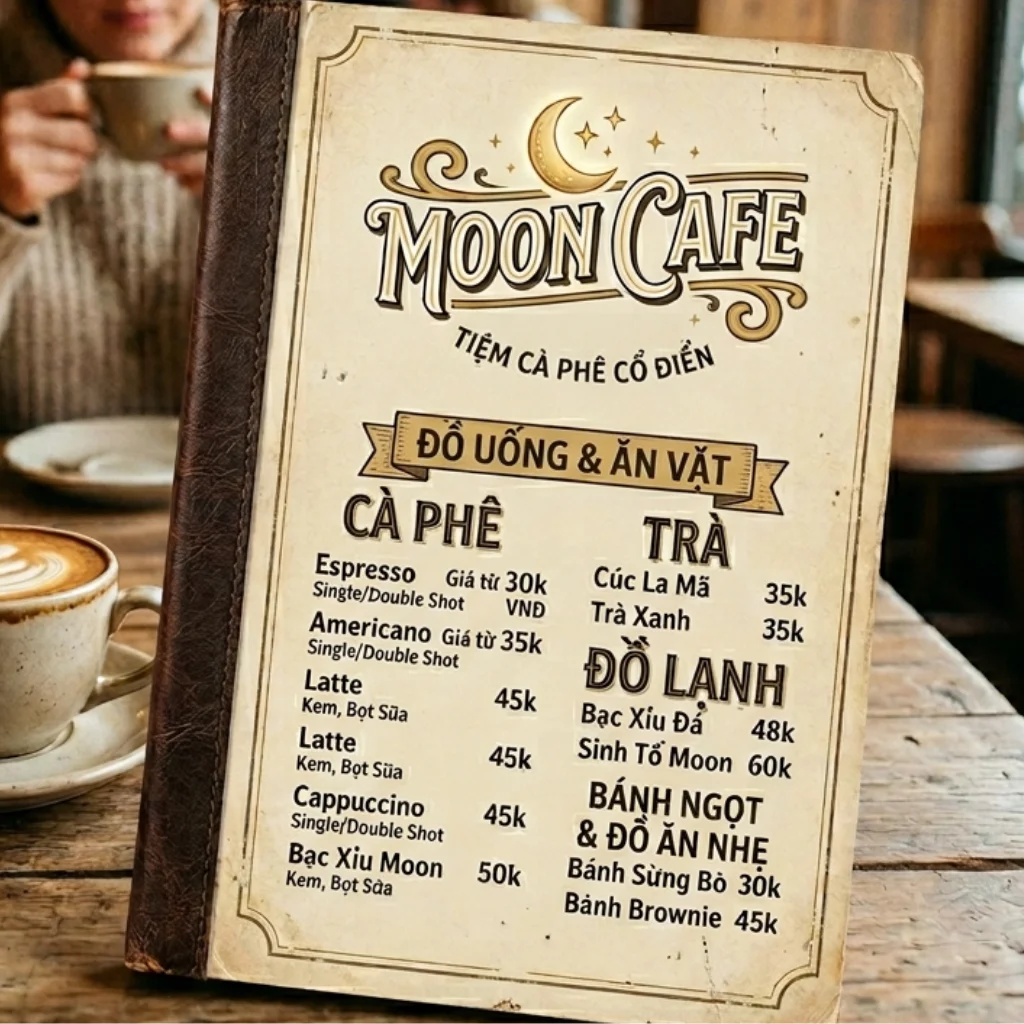 MOON CAFE
TIỆM CÀ PHÊ CỔ ĐIỂN
ĐỒ UỐNG & ĂN VẶT
CÀ PHÊ
Espresso Giá từ 30k
Single/Double Shot VNĐ
Americano Giá từ 35k
Single/Double Shot
Latte 45k
Kem, Bọt Sũa
Latte 45k
Kem, Bọt Sũa
Cappuccino 45k
Single/Double Shot
Bạc Xiu Moon 50k
Kem, Bọt Sũa
TRÀ
Cúc La Mã 35k
Trà Xanh 35k
ĐỒ LẠNH
Bạc Xíu Đá 48k
Sinh Tố Moon 60k
BÁNH NGỌT
& ĐỒ ĂN NHẸ
Bánh Sừng Bò 30k
Bánh Brownie 45k